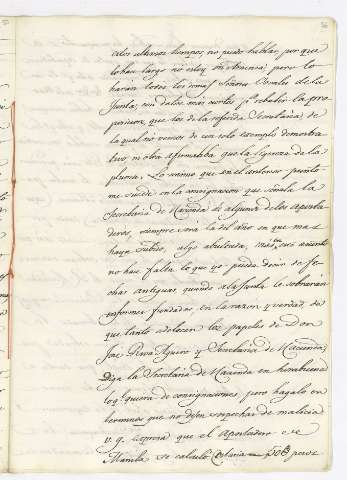 estos ultimos tiempos no puedo hablar, por que
lo hace largo no estoy en America; pero lo
haran todos los demas Señores Vocales de la
Junta, con datos mas ciertos pª rebatir la pro
posicion, que los de la referida Secretaria de
la qual no vemos de un solo exemplo demostra
tivo, ni otra afirmativa que la ligereza de la
pluma. Lo mismo que en el anterior punto
me sucede en la consignacion que señala la
Secretaria de Hacienda de alguno de los Aposta
deros, siempre sera la del año en que mas
haya subido, algo abultada,
no hace falta lo que yo puedo decir de fe
chas antiguas, quando a la Junta le sobrarán
informes fundados, en la razon y verdad, de
que tanto adolecen los papeles de Don
José Perez Aquino y Secretaria de Hacienda.
Diga la Secretaria de Hacienda en horabuena
lo qe quiera de consignaciones, pero hagalo en
terminos que no dejen sospechas de malicia
v. g. Expresa que el Apostadero de
Manila se calculó 500 pesos